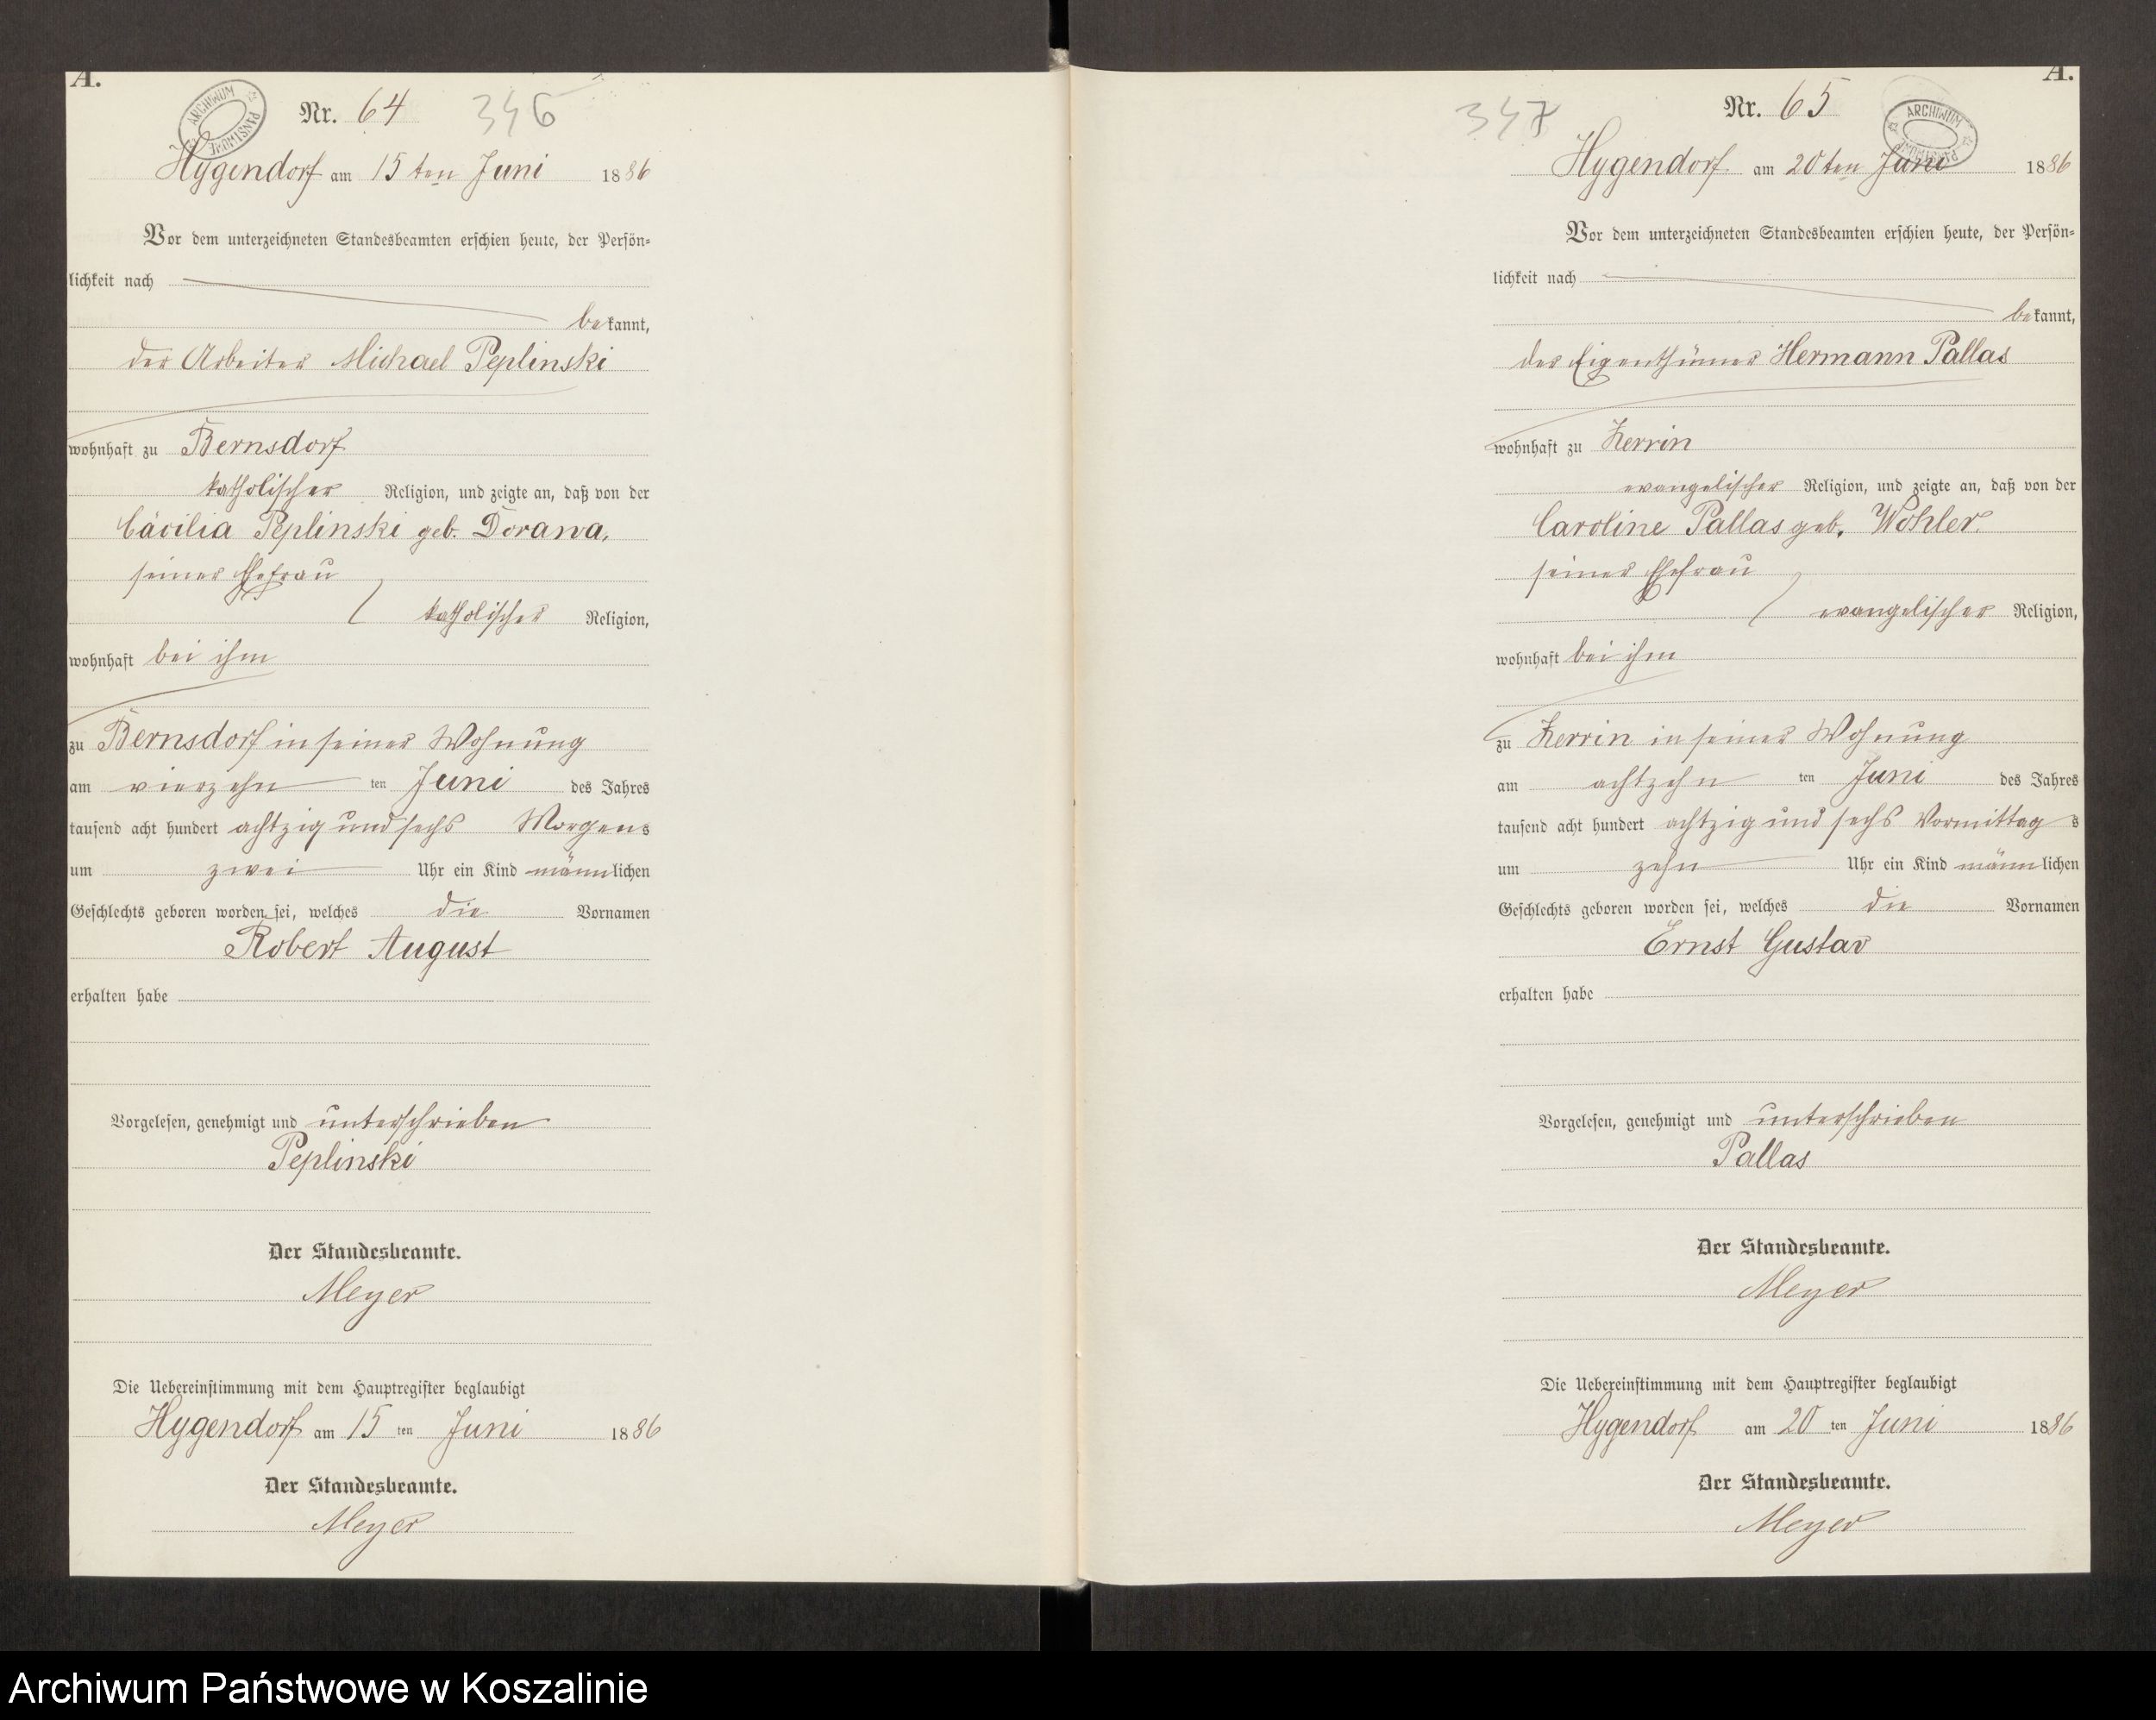 A.
ARCHIWUM PAŃSTWOWE
Nr. 64 346
Hygendorf am 15 ten Juni 1886
Vor dem unterzeichneten Standesbeamten erschien heute, der Persön-
lichkeit nach
bekannt,
der Arbeiter Michael Peplinski
wohnhaft zu Bernsdorf
katholischer Religion, und zeigte an, daß von der
Cäcilia Peplinski geb. Dorawa,
seiner Ehefrau
katholischer Religion,
wohnhaft bei ihm
zu Bernsdorf in seiner Wohnung
am vierzehn ten Juni des Jahres
tausend acht hundert achtzig und sechs Morgens
um zwei Uhr ein Kind männlichen
Geschlechts geboren worden sei, welches die Vornamen
Robert August
erhalten habe
Vorgelesen, genehmigt und unterschrieben
Peplinski
Der Standesbeamte.
Meyer
Die Uebereinstimmung mit dem Hauptregister beglaubigt
Hygendorf am 15 ten Juni 1886
Der Standesbeamte.
Meyer
A.
347 Nr. 65
ARCHIWUM PAŃSTWOWE
Hygendorf am 20 ten Juni 1886
Vor dem unterzeichneten Standesbeamten erschien heute, der Persön-
lichkeit nach
bekannt,
der Eigenthümer Hermann Pallas
wohnhaft zu Zerrin
evangelischer Religion, und zeigte an, daß von der
Caroline Pallas geb. Wohler
seiner Ehefrau
evangelischer Religion,
wohnhaft bei ihm
zu Zerrin in seiner Wohnung
am achtzehn ten Juni des Jahres
tausend acht hundert achtzig und sechs Vormittags
um zehn Uhr ein Kind männlichen
Geschlechts geboren worden sei, welches die Vornamen
Ernst Gustav
erhalten habe
Vorgelesen, genehmigt und unterschrieben
Pallas
Der Standesbeamte.
Meyer
Die Uebereinstimmung mit dem Hauptregister beglaubigt
Hygendorf am 20 ten Juni 1886
Der Standesbeamte.
Meyer
Archiwum Państwowe w Koszalinie